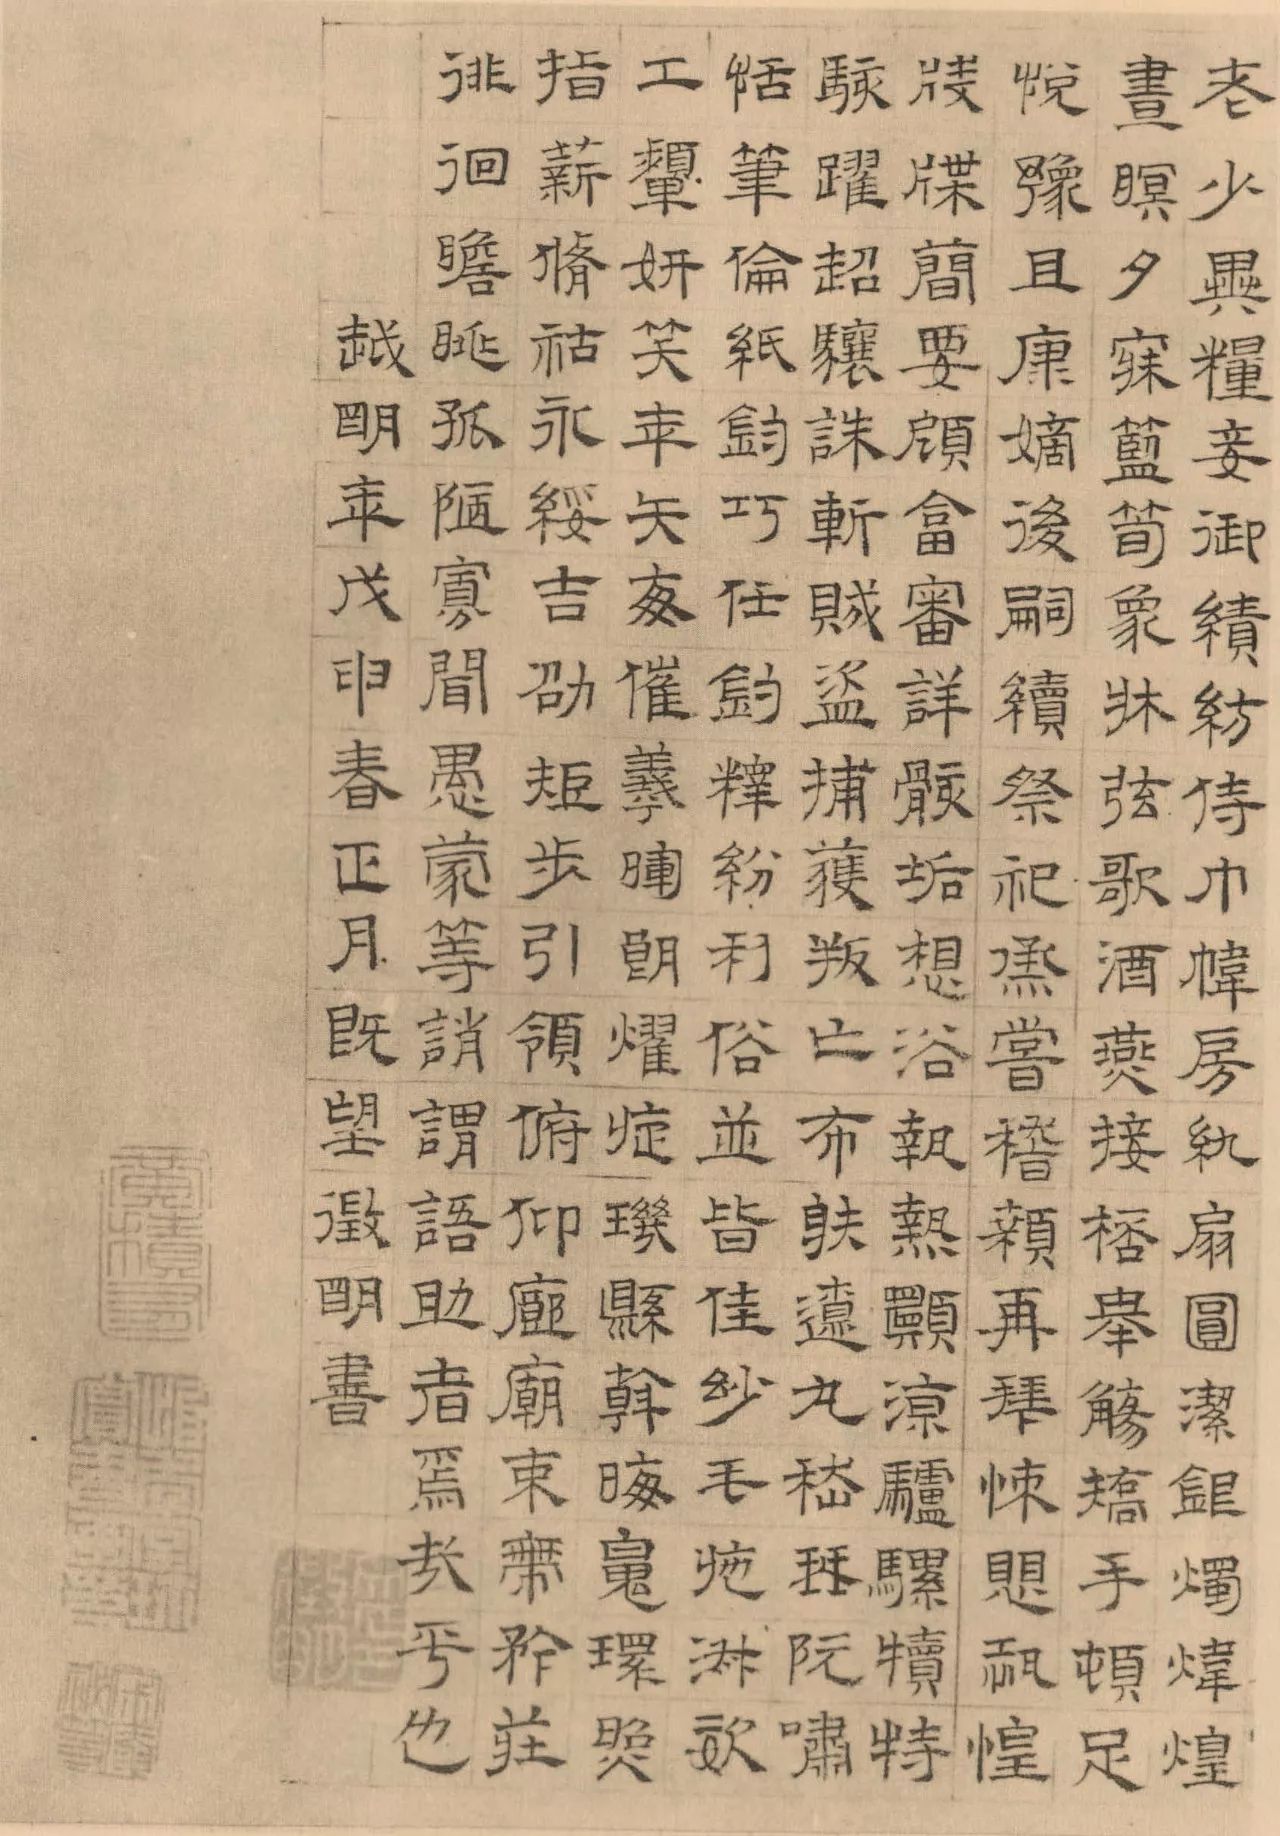 老少異糧妾御績紡侍巾幃房紈扇圓潔銀燭煒煌
晝瞑夕寐籃筍象牀弦歌酒燕接桮舉觴矯手頓足
悅豫且康嫡後嗣續祭祀烝嘗稽顙再拜悚愳恐惶
牋牒簡要顧畣審詳骸垢想浴執熱願涼驢騾犢特
駭躍超驤誅斬賊盜捕獲叛亡布射遼丸嵇琴阮嘯
恬筆倫紙鈞巧任釣釋紛利俗並皆佳妙毛施淑姿
工顰妍笑年矢每催羲暉朗燿旋璣縣斡晦魄環照
指薪脩祜永綏吉劭矩步引領俯仰廊廟束帶矜莊
徘徊瞻眺孤陋寡聞愚蒙等誚謂語助者焉哉乎也
越明年戊申春正月既望徵明書